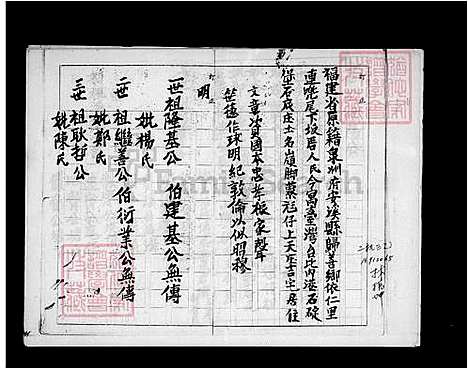 福建省原籍泉州府安溪縣歸善鄉依仁里
連墘尾下坂居人民今寓臺灣台北內港石碇
保石底庄土名嶺腳藁尫仔上天吉宅居住
文章資國本忠孝振家聲
箕德作球明紀敦倫以似昭穆
明
一世祖隆基公 伯建基公無傳
妣楊氏
二世祖繼善公伯衍業公無傳
妣鄭氏
三世祖耿哲公
妣陳氏
FamilySearch